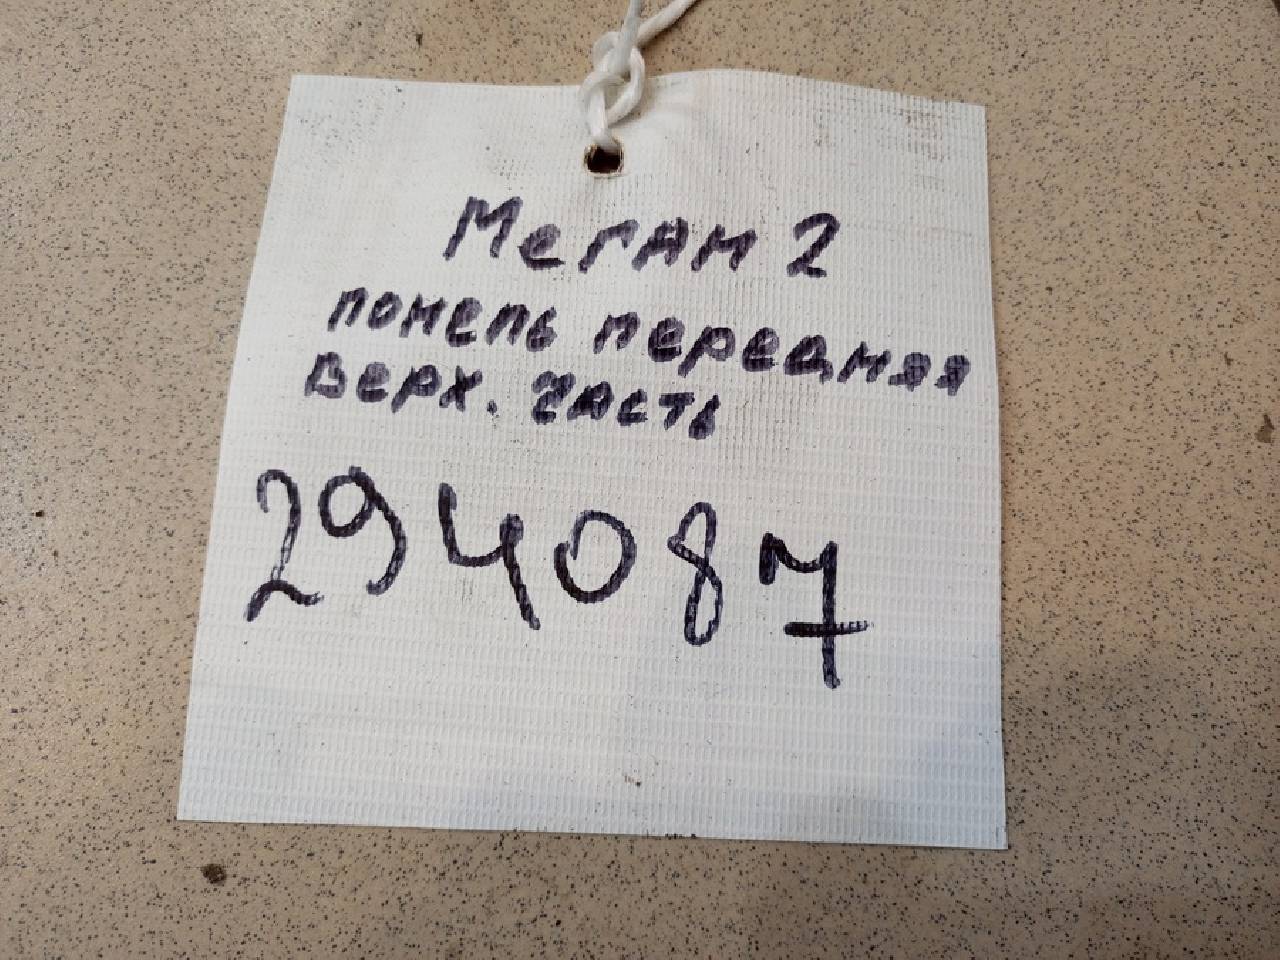 Меган 2
понель передняя
верх. часть
294087